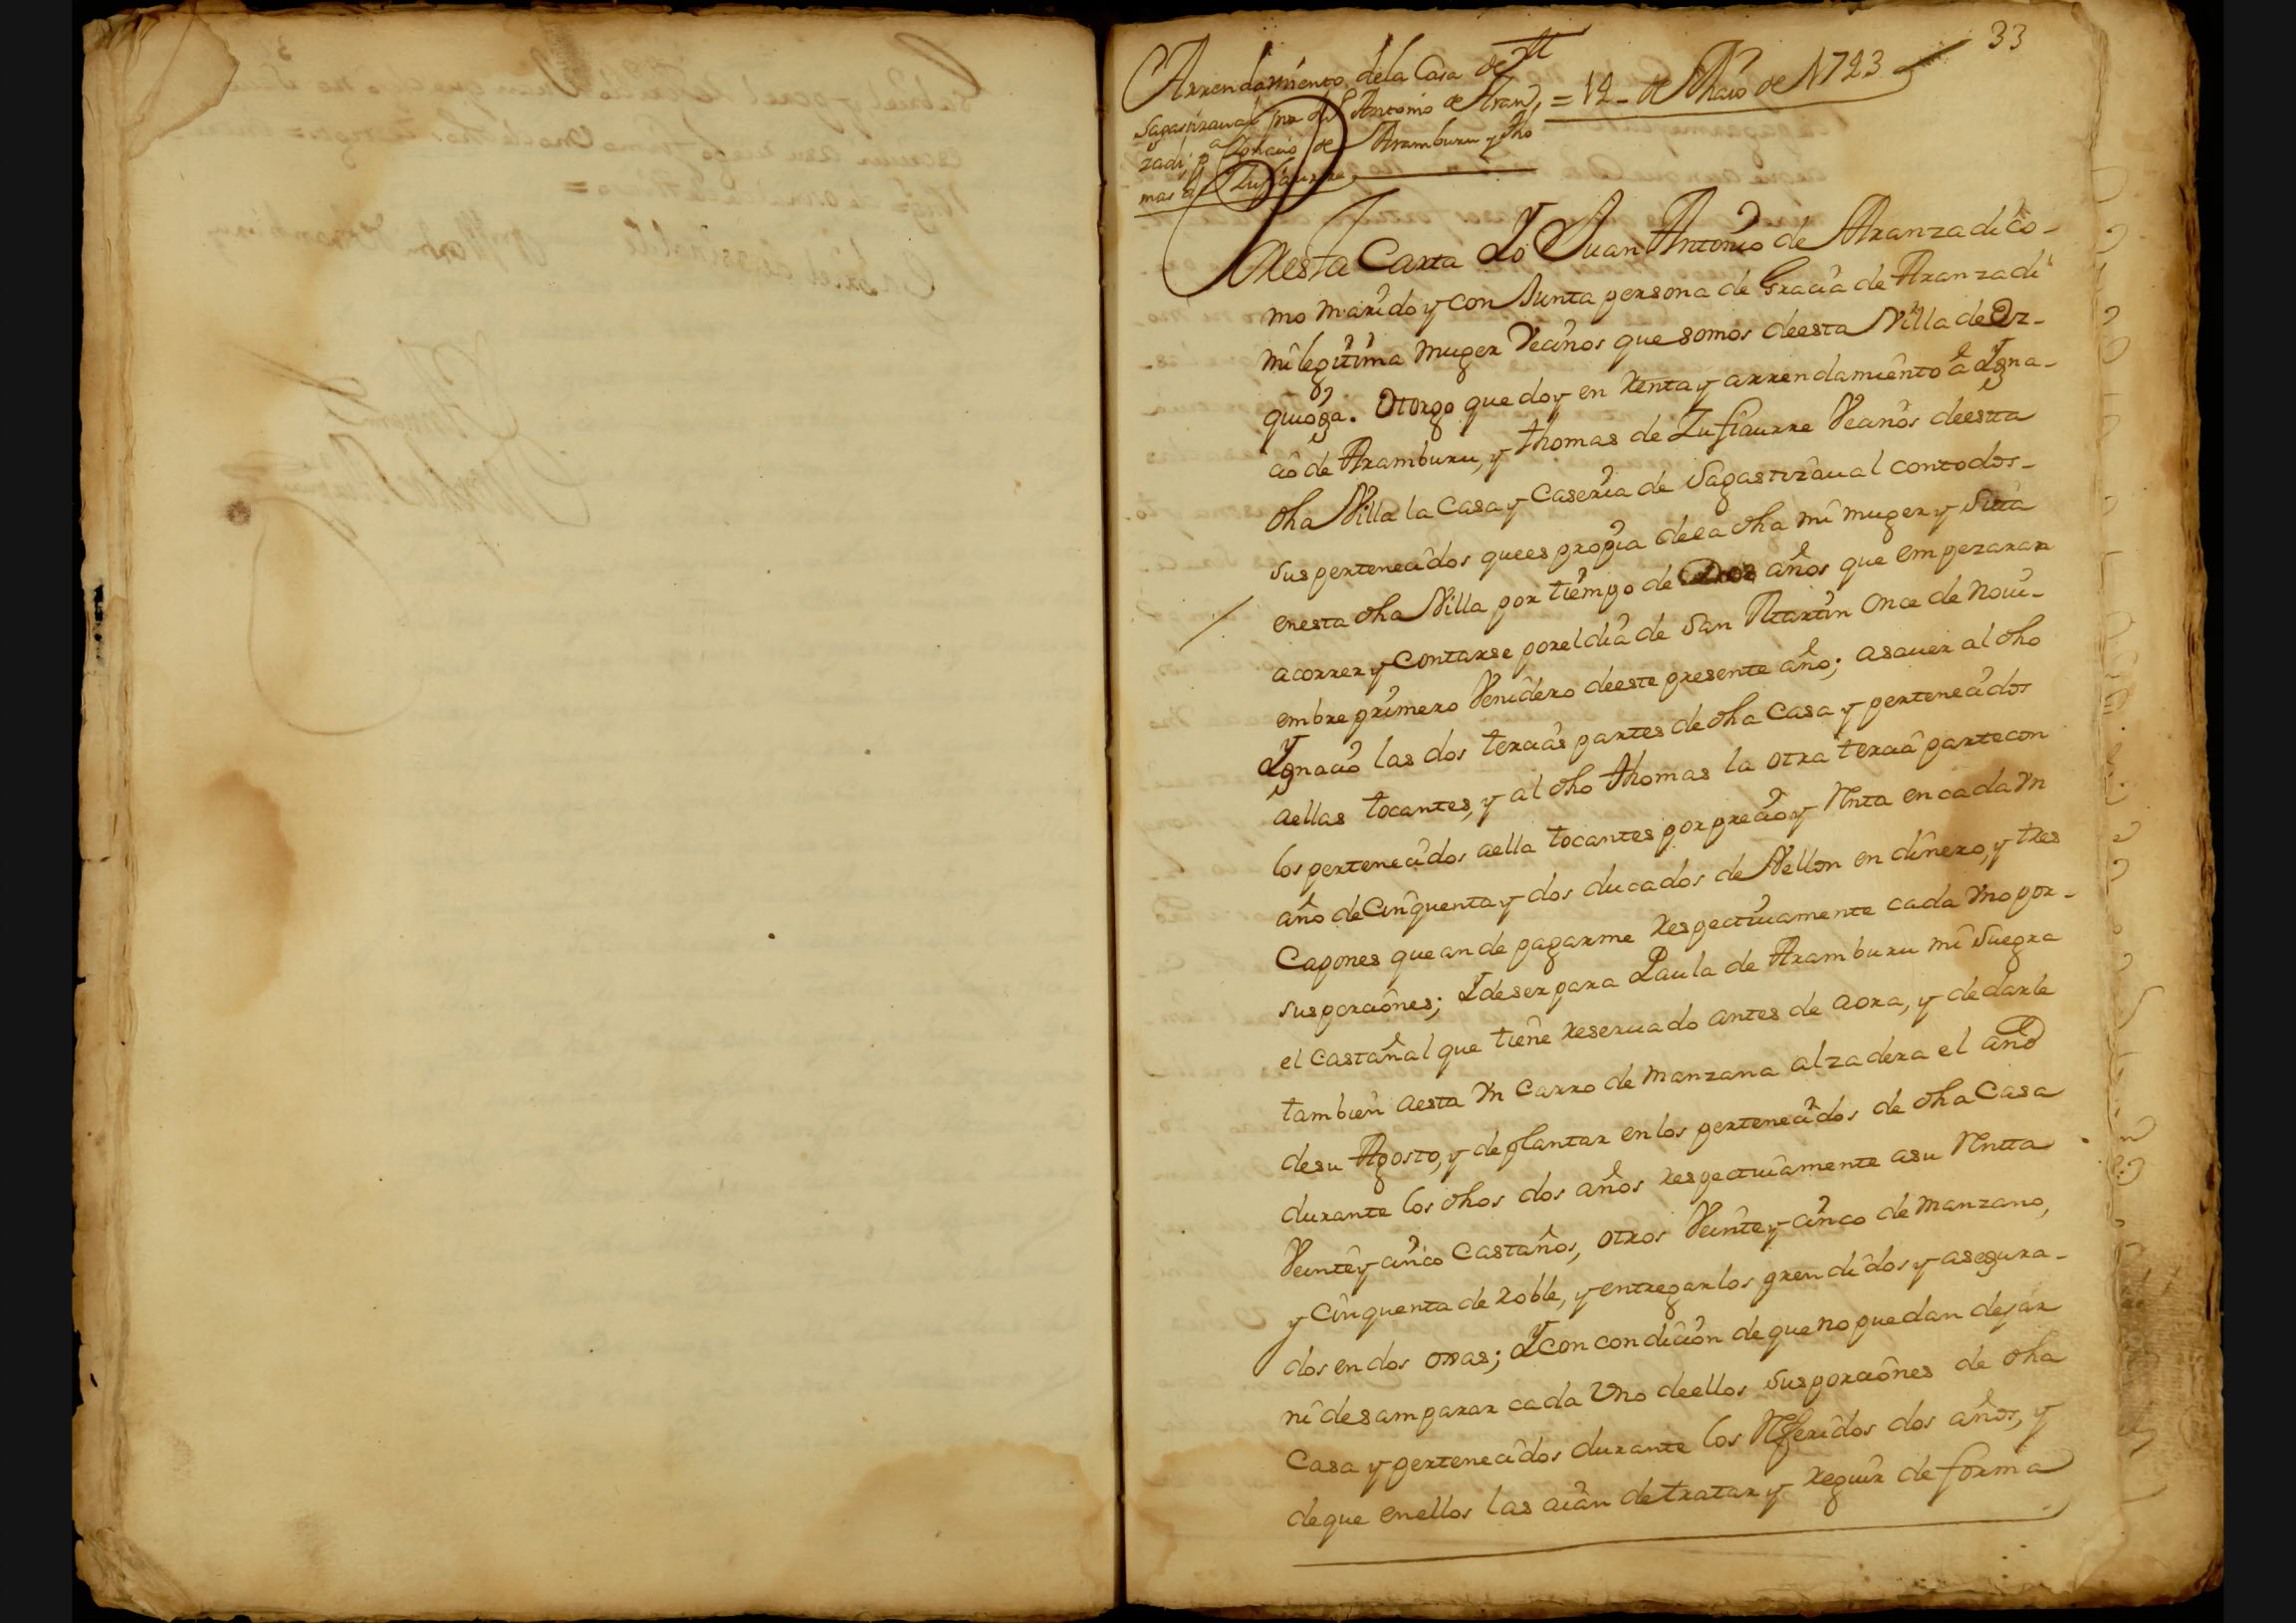 33
Arrendamiento dela Casa de
Sagastizaual por Jn Antonio de Aran = 12 - de Maio de 1723
zadi pa Ignacio de Aramburu y tho
mas de Zufiaurre
Por esta Carta Yo Juan Antonio de Aranzadi co-
mo marido y con Junta persona de Gracia de Aranzadi
mi legitima muger Vecinos que somos deesta Villa de Oz-
quioga. Otorgo que doy en Renta y arrendamiento a Ygna-
cio de Aramburu, y thomas de Zufiaurre Vecinos deesta
dha Villa la Casa y Caseria de Sagastizaual contodos-
sus pertenecidos quees propia dela dha mi muger y Sitta
enesta dha Villa por tiempo de Dos años que empezaran
acorrer y Contarse porel dia de San Martin Once de Noui-
embre primero Venidero deeste presente año; asauer al dho
Ygnacio las dos tercias partes de dha Casa y pertenecidos
aellas tocantes, y al dho thomas la otra tercia parte con
los pertenecidos aella tocantes por precio y Rnta en cada Vn
año de Cinquenta y dos ducados de Vellon en dinero, y tres
Capones que an de pagarme Respectiuamente cada Vno por-
sus porciones; Y de ser para Paula de Aramburu mi Suegra
el Castañal que tiene Reseruado antes de aora, y de darle
tambien aesta Vn Carro de manzana alzadera el año
desu Agosto, y de plantar en los pertenecidos de dha Casa
durante los dhos dos años Respectiuamente asu Rntta
Veinte y cinco Castaños, otros Veinte y cinco de manzano,
y Cinquenta de Roble, y entregarlos prendidos y asegura-
dos en dos oxas; Y con condicion de que no puedan dejar
ni desamparar cada Vno deellos Sus porciones de dha
Casa y pertenecidos durante los Rferidos dos años, y
de que enellos las aian de tratar y Reguir de forma